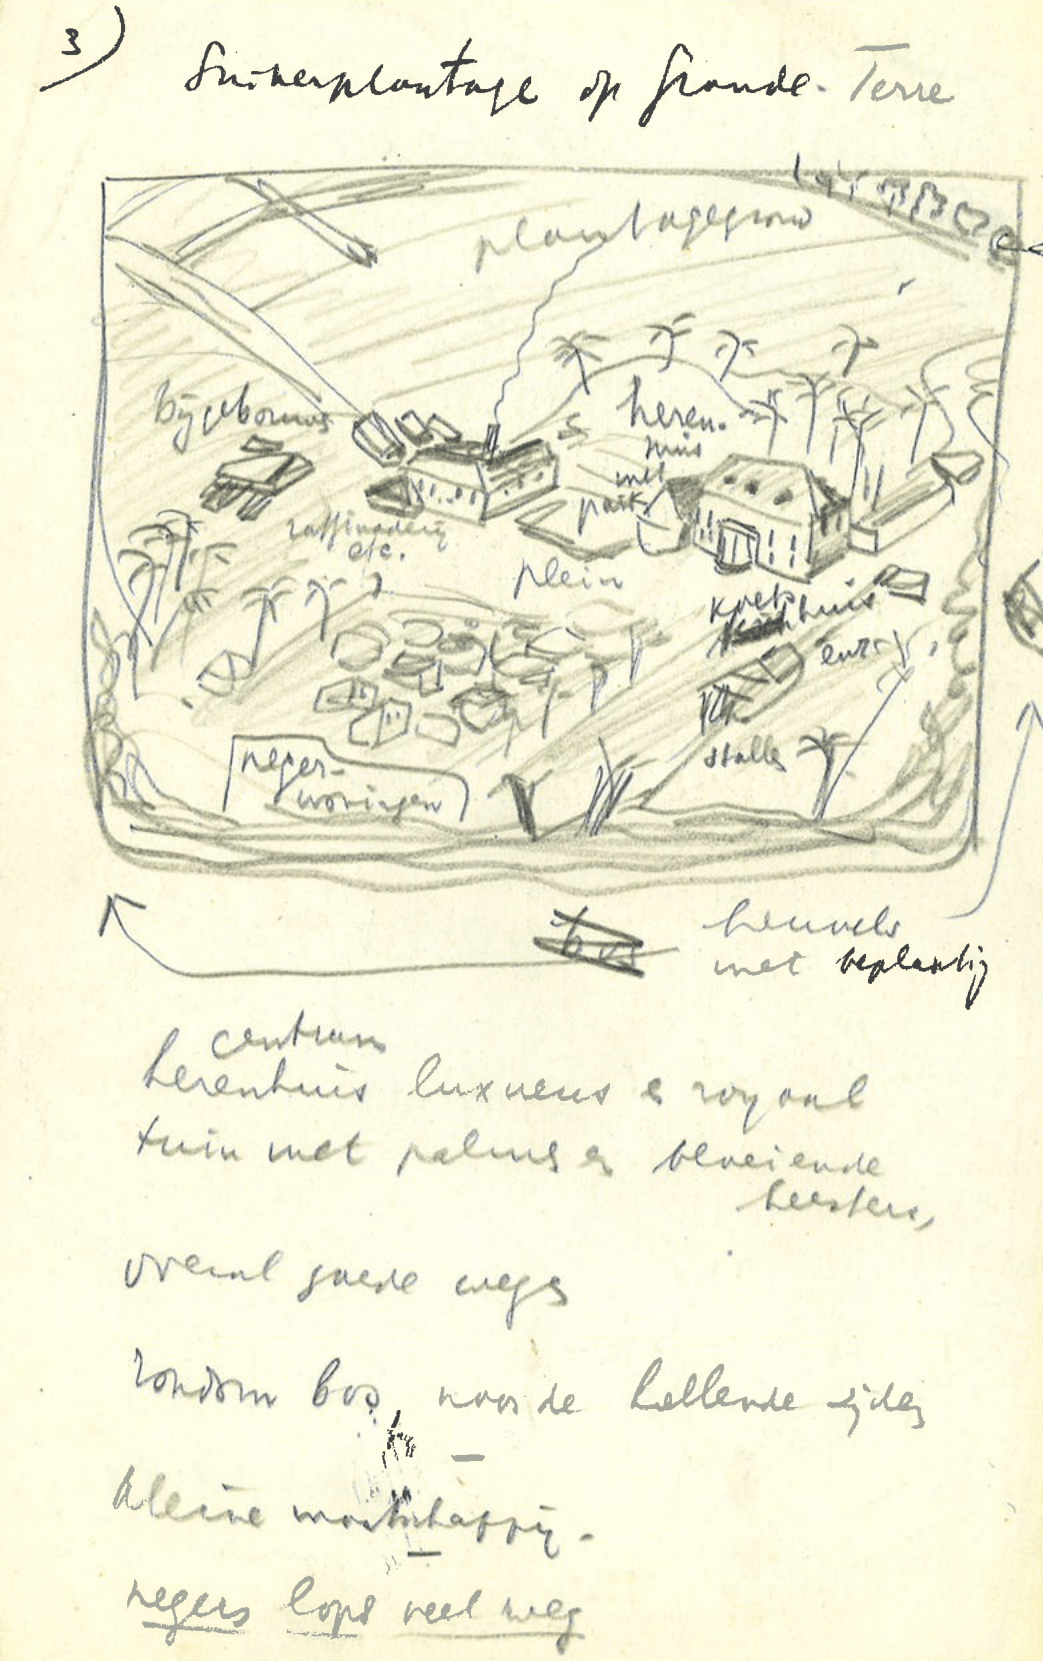 3)
Suikerplantage op Grande-Terre
plantagegrond
bijgebouwen
heren-
huis
met
park
raffinaderij
etc.
plein
koetshuis
enz.
stallen
neger-
woningen
bos
heuvels
met beplanting
centrum
herenhuis luxueus en royaal
tuin met palmen en bloeiende
heesters,
overal goede wegen
rondom bos, naar de hellende zijden
kleine maatschappij.
negers lopen veel weg